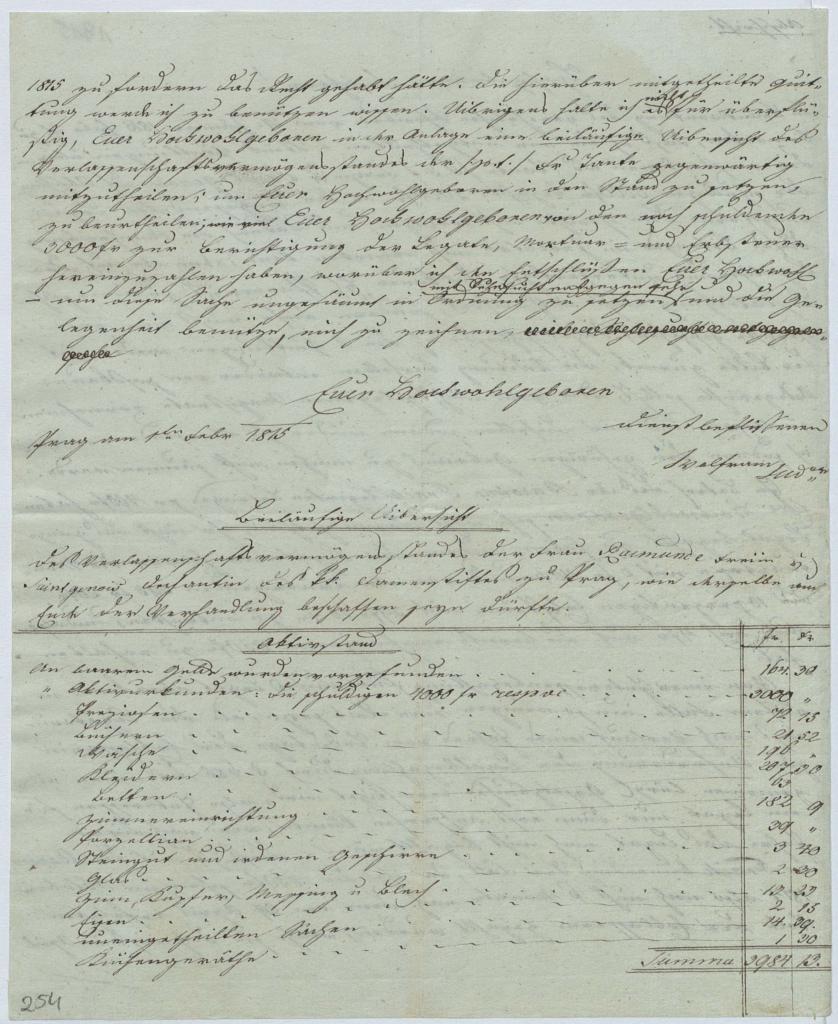 1815 zu fordern das Recht gehabt hätte. Die hierüber mitgetheilte Quit-
tung werde ich zu benützen wissen. Uibrigens halte ich es nicht für überflü-
ßig, Euer Hochwohlgeboren in der Anlage eine beiläufige Uibersicht des
Verlassenschaftsvermögensstandes der Fr Tante gegenwärtig
mitzutheilen; um Euer Hochwohlgeboren in den Stand zu setzen,
zu beurtheilen, wie viel Euer Hochwohlgeboren von den noch schuldenden
3000 fr zur Berichtigung der Legate, Mortuar= und Erbsteuer
hereinzuzahlen haben, worüber ich den Entschlüßen Euer Hochwohl
– um diese Sache ungesäumt in Ordnung zu setzen mit Sehnsucht entgegen sehe und die Ge-
legenheit benütze, mich zu zeichnen,
Euer Hochwohlgeboren
Prag am 1ten Febr 1815
dienstbeflissenen
Wolfram
Beiläufige Uibersicht
des Verlassenschaftsvermögensstandes der Frau Raimunde Freiin v
Saintgenois Dechantin des kk. Damenstiftes zu Prag, wie derselbe am
Ende der Verhandlung beschaffen seyn dürfte.
Aktivstand fr xr
An baarem Gelde wurden vorgefunden 164 30
" Aktivurkunden: die schuldigen 4000 fr respve 3000 "
Preziosen 72 15
Büchern 21 52
Wäsche 196 "
Kleidern 207 30
Betten 63
Zimmereinrichtung 182 9
Porzellian 39 "
Steingut und irdenen Geschirre 3 40
Glas 2 30
Zinn, Kupfer, Messing u Blech 13 23
Eisen 2 15
uneingetheilten Sachen 14 39
Küchengeräthe 1 30
Summa 3984 13
254